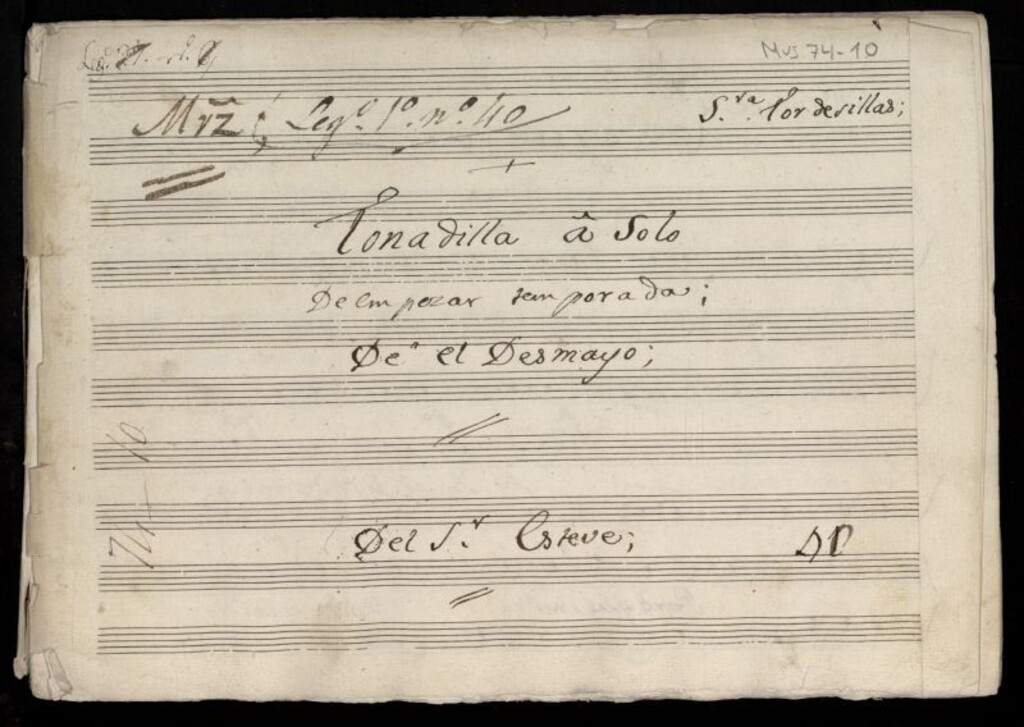 Mus 74-10
Mrz̃ Legº. 1º. nº. 40
S.ra Tordesillas;
Tonadilla â Solo
De empezar temporada;
De el Desmayo;
Del S.r Esteve;
74-10